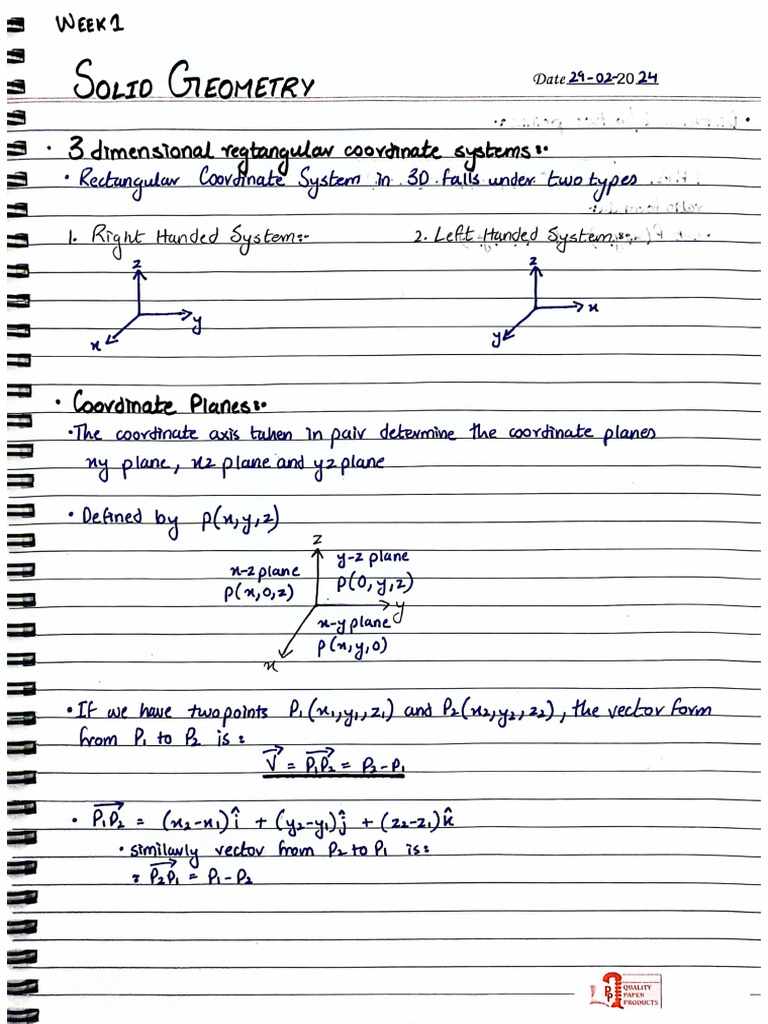 WEEK 1
SOLID GEOMETRY
Date 29-02-2024
• 3 dimensional regtangular coordinate systems:-
• Rectangular Coordinate System in 3D falls under two types
1. Right Handed System:- 2. Left Handed System:-
z z
y x
x y
• Coordinate Planes:-
• The coordinate axis taken in pair determine the coordinate planes
xy plane, xz plane and yz plane
• Defined by P(x,y,z)
z
x-z plane y-z plane
P(x,0,z) P(0,y,z)
y
x-y plane
x P(x,y,0)
• If we have two points P₁(x₁,y₁,z₁) and P₂(x₂,y₂,z₂), the vector form
from P₁ to P₂ is:
V⃗ = P₁P₂⃗ = P₂-P₁
• P₁P₂⃗ = (x₂-x₁)î + (y₂-y₁)ĵ + (z₂-z₁)k̂
• similarly vector from P₂ to P₁ is:
: P₂P₁⃗ = P₁-P₂
QUALITY
PAPER
PRODUCTS